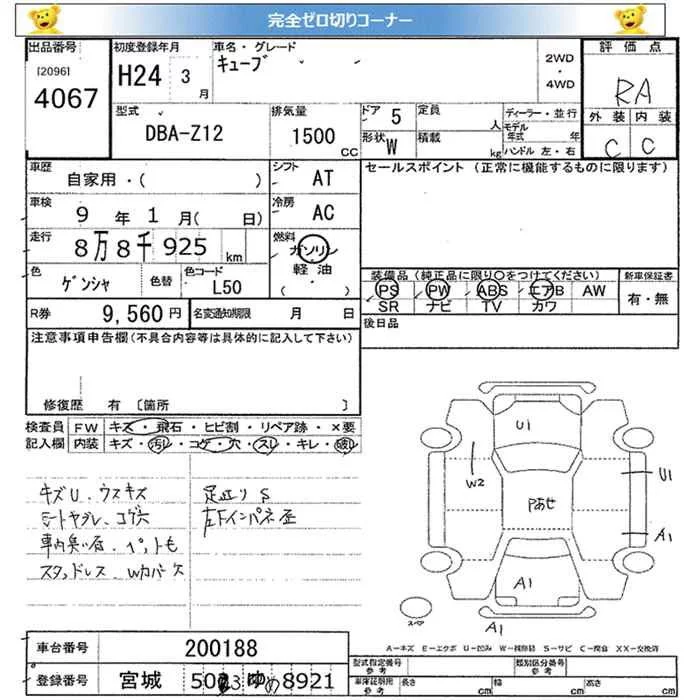 完全ゼロ切りコーナー
出品番号
[2096]
4067
初度登録年月
H24 3月
車名・グレード
キューブ
2WD・4WD
評価点
RA
外装 内装
C C
型式
DBA-Z12
排気量
1500 CC
ドア 5
形状 W
定員 人
積載 kg
ディーラー・並行
モデル年式 年
ハンドル 左・右
車歴
自家用・( )
シフト AT
セールスポイント (正常に機能するものに限ります)
車検
9年1月( 日)
冷房 AC
走行
8万8千925km
燃料
ガソリン
軽油
( ・ )
色
ゲンシャ
色替
色コード
L50
装備品(純正品に限り○をつけてください)
PS PW ABS エアB AW
SR ナビ TV カワ
新車保証書
有・無
R券 9,560円
名変通知期限 月 日
後日品
注意事項申告欄(不具合内容等は具体的に記入して下さい)
修復歴 有 〔箇所 〕
検査員記入欄
FW キズ・飛石・ヒビ割・リペア跡・×要
内装 キズ・汚レ・コゲ・穴・スレ・キレ・破レ
キズU.ウスキズ
シートヤブレ.コゲ穴
車内臭い有.ペットも
スタッドレス Wカバー欠
足廻りS
左Fインパネ歪
U1
W2
U1
Pあせ
A1
A1
スペア
A1
A=キズ E=エクボ U=凹み W=補修跡 S=サビ C=腐食 XX=交換済
車台番号 200188
登録番号 宮城 ゆ 8921
型式指定番号 参考
類別区分番号 参考
車庫証明用 参考
長さ cm 幅 cm 高さ cm